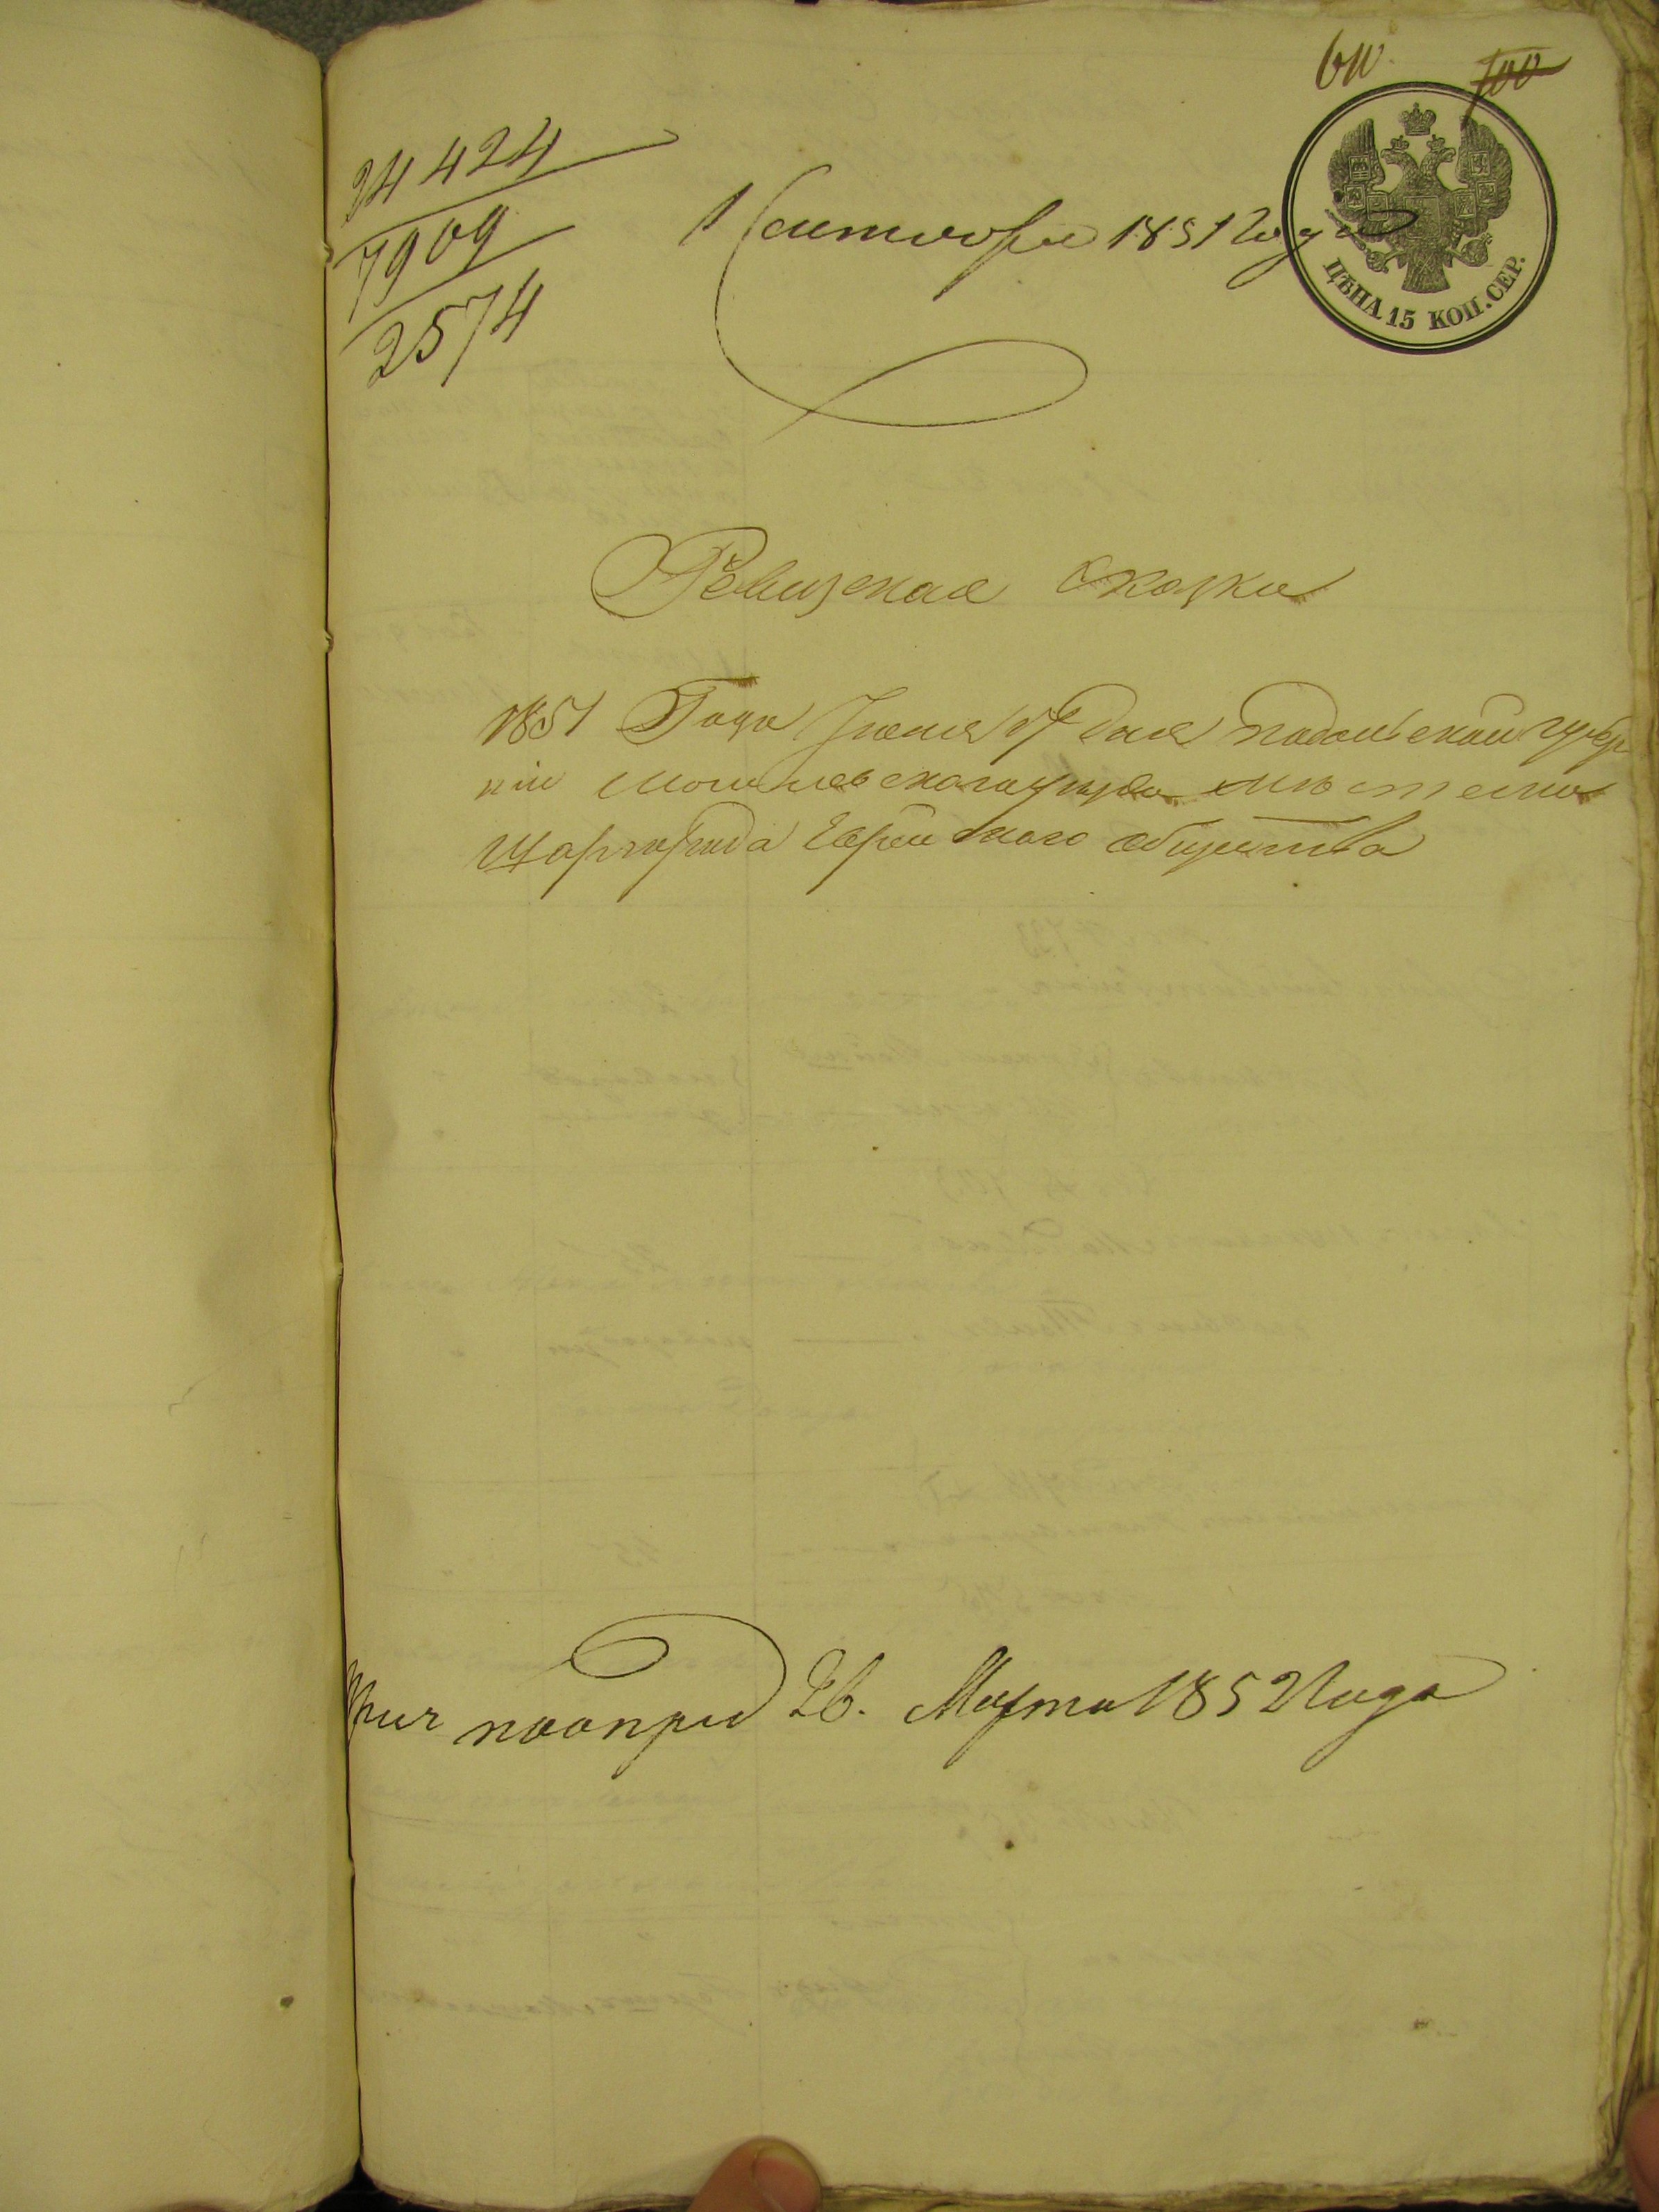 60
100
24424
7909
2574
1 Сентября 1851 Года
ЦѢНА 15 КОП. СЕР.
Ревизская сказка
1851 Года Июня 17 дня Подольской губер
ніи Могилевского уезда местечка
Шаргорода Еврейского общества
поопред 26. Марта 1852 Года